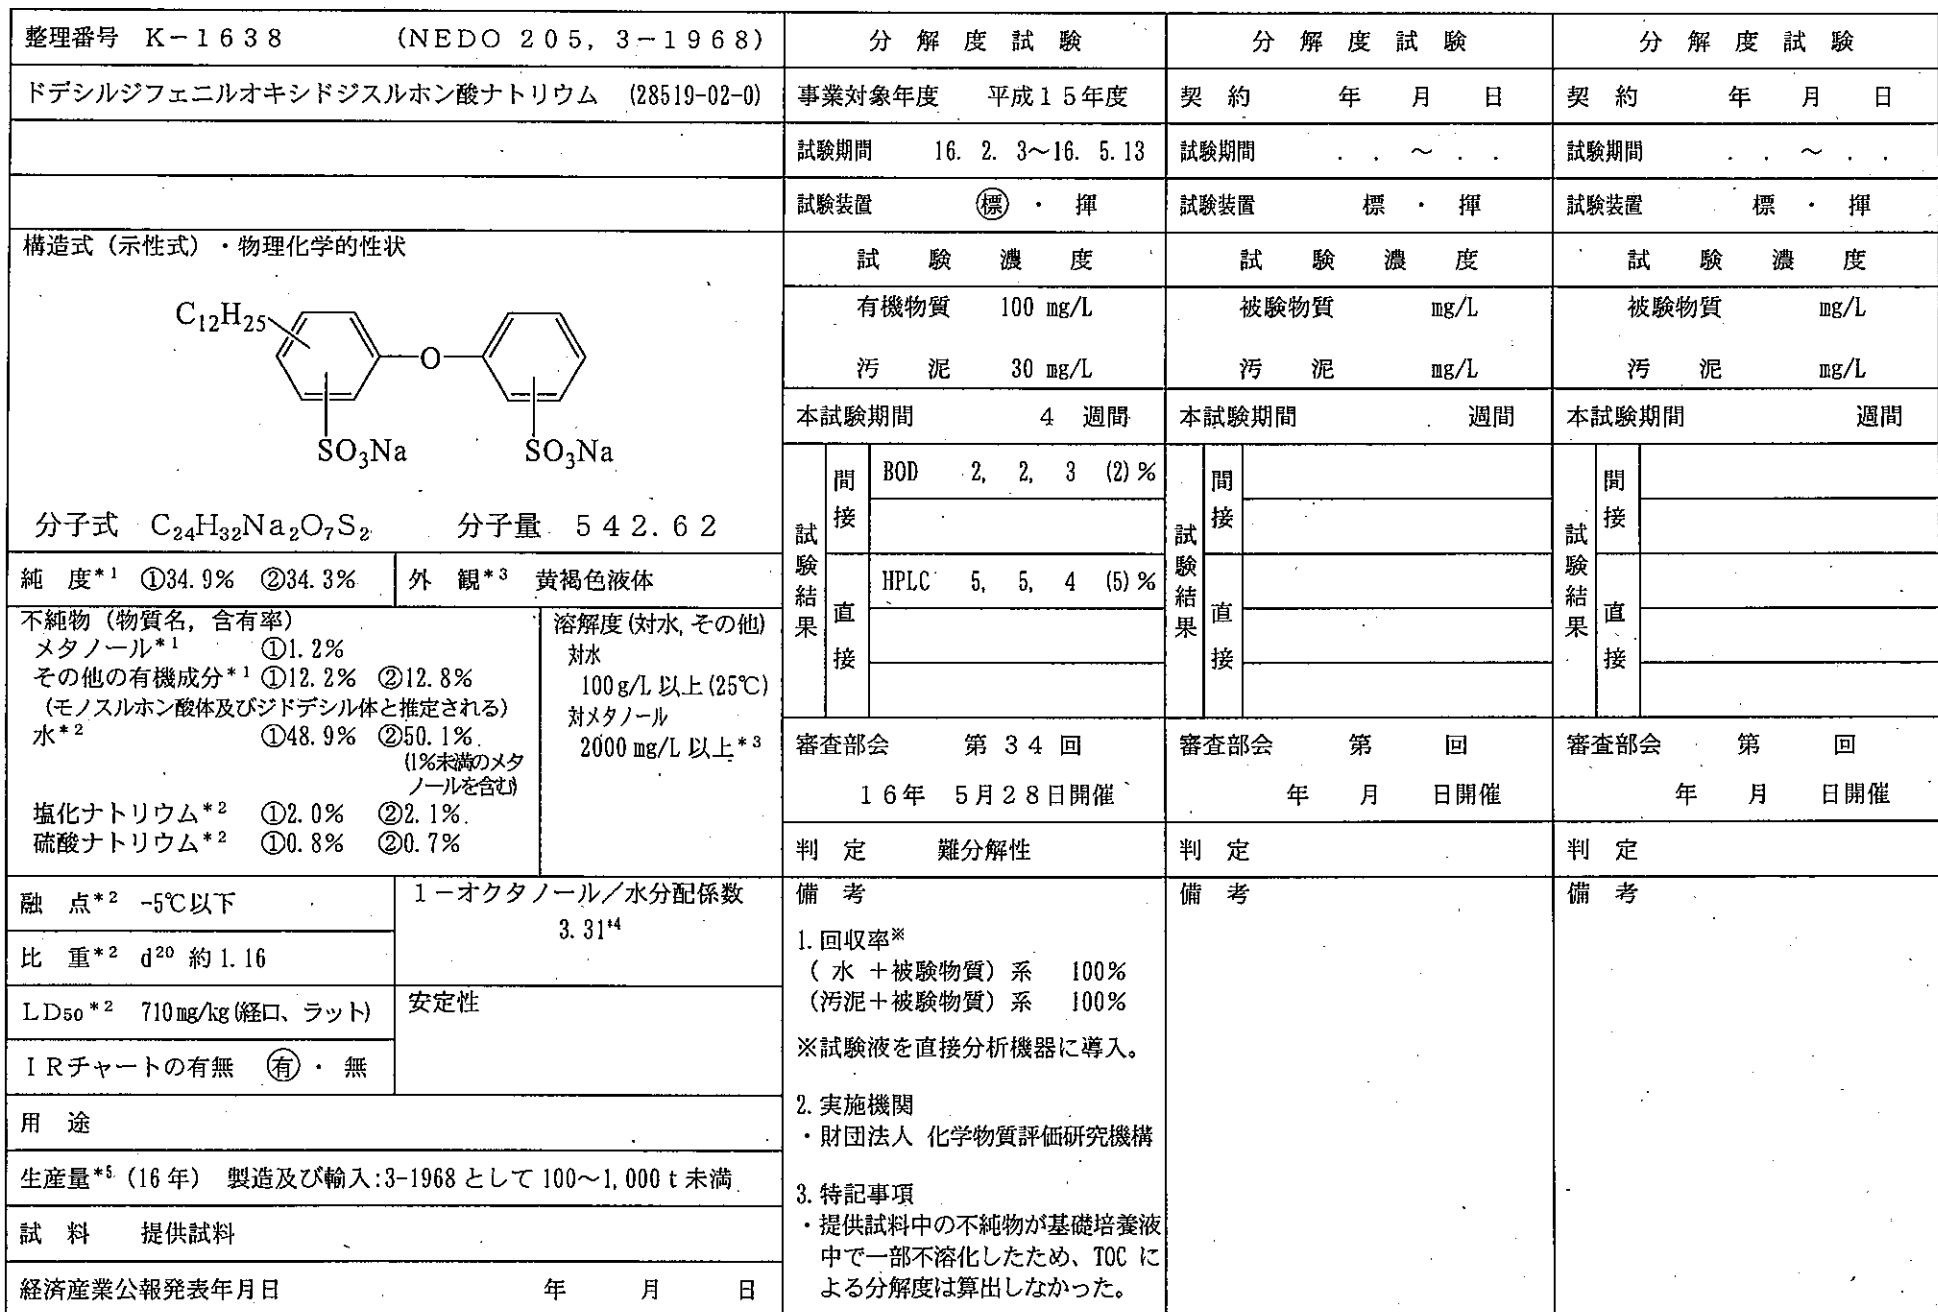 整理番号 K-1638 (NEDO 205, 3-1968)
ドデシルジフェニルオキシドジスルホン酸ナトリウム (28519-02-0)
構造式(示性式)・物理化学的性状
C12H25
O
SO3Na SO3Na
分子式 C24H32Na2O7S2 分子量 542.62
純 度*1 ①34.9% ②34.3%
外 観*3 黄褐色液体
不純物(物質名, 含有率)
メタノール*1 ①1.2%
その他の有機成分*1 ①12.2% ②12.8%
(モノスルホン酸体及びジドデシル体と推定される)
水*2 ①48.9% ②50.1%
(1%未満のメタ
ノールを含む)
塩化ナトリウム*2 ①2.0% ②2.1%
硫酸ナトリウム*2 ①0.8% ②0.7%
溶解度(対水, その他)
対水
100g/L 以上(25℃)
対メタノール
2000 mg/L 以上*3
融 点*2 -5℃以下
比 重*2 d20 約1.16
LD50*2 710mg/kg(経口、ラット)
IRチャートの有無 有・無
1-オクタノール/水分配係数
3.31*4
安定性
用 途
生産量*5 (16年) 製造及び輸入:3-1968 として 100~1,000 t 未満
試 料 提供試料
経済産業公報発表年月日 年 月 日
分 解 度 試 験
事業対象年度 平成15年度
試験期間 16. 2. 3~16. 5.13
試験装置 標 ・ 揮
試 験 濃 度
有機物質 100 mg/L
汚 泥 30 mg/L
本試験期間 4 週間
試験結果
間接
BOD 2, 2, 3 (2)%
直接
HPLC 5, 5, 4 (5)%
審査部会 第34回
16年 5月28日開催
判 定 難分解性
備 考
1.回収率※
( 水 +被験物質)系 100%
(汚泥+被験物質)系 100%
※試験液を直接分析機器に導入。
2.実施機関
・財団法人 化学物質評価研究機構
3.特記事項
・提供試料中の不純物が基礎培養液
中で一部不溶化したため、TOC に
よる分解度は算出しなかった。
分 解 度 試 験
契 約 年 月 日
試験期間 . . ~ . .
試験装置 標 ・ 揮
試 験 濃 度
被験物質 mg/L
汚 泥 mg/L
本試験期間 週間
試験結果
間接
直接
審査部会 第 回
年 月 日開催
判 定
備 考
分 解 度 試 験
契 約 年 月 日
試験期間 . . ~ . .
試験装置 標 ・ 揮
試 験 濃 度
被験物質 mg/L
汚 泥 mg/L
本試験期間 週間
試験結果
間接
直接
審査部会 第 回
年 月 日開催
判 定
備 考